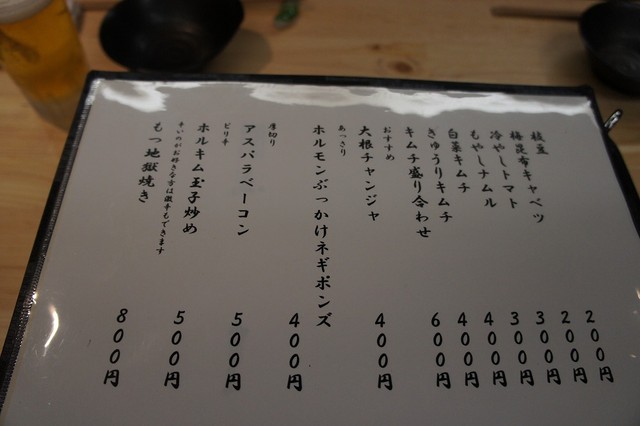 枝豆 200円
梅昆布キャベツ 200円
冷やしトマト 300円
もやしナムル 300円
白菜キムチ 400円
きゅうりキムチ 400円
キムチ盛り合わせ 600円
おすすめ
大根チャンジャ 400円
あっさり
ホルモンぶっかけネギポンズ 400円
厚切り
アスパラベーコン 500円
ピリ辛
ホルキム玉子炒め 500円
辛いのがお好きな方は激辛もできます
もつ地獄焼き 800円